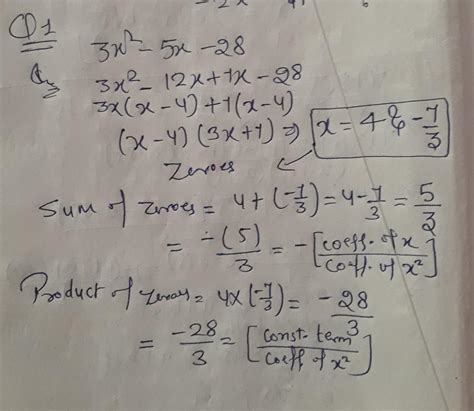 Q1
3x² - 5x - 28
3x² - 12x + 7x - 28
3x(x - 4) + 7(x - 4)
(x - 4) (3x + 7) ⇒ x = 4 & -7/3
Zeroes
Sum of zeroes = 4 + (-7/3) = 4 - 7/3 = 5/3
= -(5)/3 = -[coeff. of x/coff. of x²]
Product of zeroes = 4x(-7/3) = -28/3
= -28/3 = [const. term/coeff of x²]